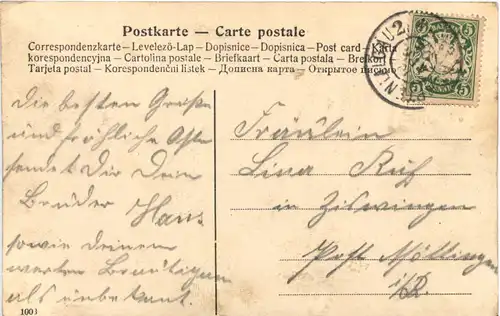 Postkarte — Carte postale
Correspondenzkarte – Levelező-Lap – Dopisnice – Dopisnica – Post card – Karta
korespondencyjna – Cartolina postale – Briefkaart – Carta postala – Brefkort
Tarjeta postal – Korespondenčni listek – Дописна карта – Открытое письмо
Die besten Grüße
und fröhliche
sendet Dir Dein
Bruder Hans
sowie deinem
werten Bräutigam
als unbekant.
Fräulein
Lina Ruf
in Ziswingen
Post Möttingen
i/R.
5 5
5 5
BAYERN
1003